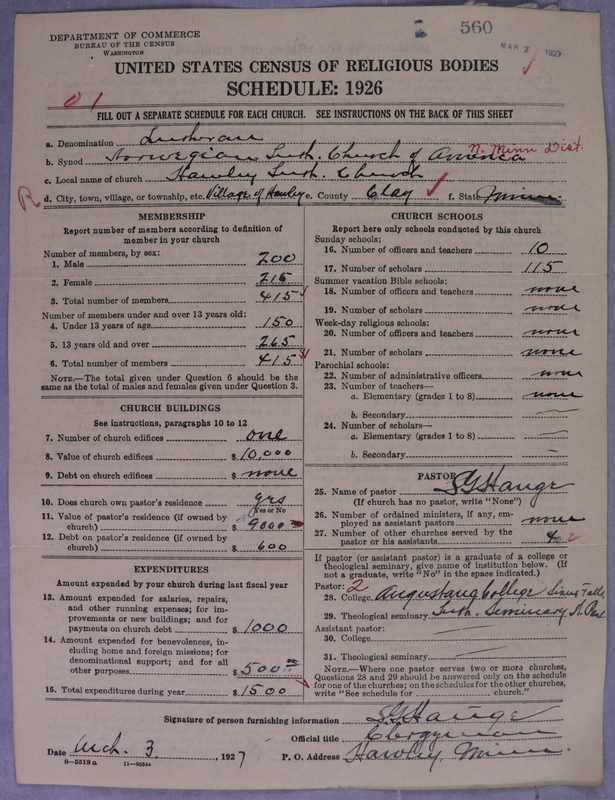 DEPARTMENT OF COMMERCE
BUREAU OF THE CENSUS
WASHINGTON
560
MAR 7 1927
UNITED STATES CENSUS OF RELIGIOUS BODIES
SCHEDULE: 1926
01
FILL OUT A SEPARATE SCHEDULE FOR EACH CHURCH. SEE INSTRUCTIONS ON THE BACK OF THIS SHEET
a. Denomination Lutheran
b. Synod Norwegian Luth. Church of America N. Minn Dist.
c. Local name of church Hawley Luth. Church
R d. City, town, village, or township, etc. Village of Hawley e. County Clay f. State Minn.
MEMBERSHIP
Report number of members according to definition of
member in your church
Number of members, by sex:
1. Male 200
2. Female 215
3. Total number of members 415
Number of members under and over 13 years old:
4. Under 13 years of age 150
5. 13 years old and over 265
6. Total number of members 415
NOTE.—The total given under Question 6 should be the
same as the total of males and females given under Question 3.
CHURCH BUILDINGS
See instructions, paragraphs 10 to 12
7. Number of church edifices one
8. Value of church edifices $ 10,000
9. Debt on church edifices $ none
10. Does church own pastor's residence yes
(Yes or No)
11. Value of pastor's residence (if owned by
church) $ 9000
12. Debt on pastor's residence (if owned by
church) $ 600
EXPENDITURES
Amount expended by your church during last fiscal year
13. Amount expended for salaries, repairs,
and other running expenses; for im-
provements or new buildings; and for
payments on church debt $ 1000
14. Amount expended for benevolences, in-
cluding home and foreign missions; for
denominational support; and for all
other purposes $ 500
15. Total expenditures during year $ 1500
CHURCH SCHOOLS
Report here only schools conducted by this church
Sunday schools:
16. Number of officers and teachers 10
17. Number of scholars 115
Summer vacation Bible schools:
18. Number of officers and teachers none
19. Number of scholars none
Week-day religious schools:
20. Number of officers and teachers none
21. Number of scholars none
Parochial schools:
22. Number of administrative officers none
23. Number of teachers—
a. Elementary (grades 1 to 8) none
b. Secondary —
24. Number of scholars—
a. Elementary (grades 1 to 8) —
b. Secondary —
PASTOR
25. Name of pastor S G Hauge
(If church has no pastor, write "None")
26. Number of ordained ministers, if any, em-
ployed as assistant pastors none
27. Number of other churches served by the
pastor or his assistants 4
If pastor (or assistant pastor) is a graduate of a college or
theological seminary, give name of institution below. (If
not a graduate, write "No" in the space indicated.)
Pastor: 2
28. College Augustana College Sioux Falls
29. Theological seminary Luth. Seminary St. Paul
Assistant pastor:
30. College —
31. Theological seminary —
NOTE.—Where one pastor serves two or more churches,
Questions 28 and 29 should be answered only on the schedule
for one of the churches; on the schedules for the other churches,
write "See schedule for ............ church."
Signature of person furnishing information S G Hauge
Official title Clergyman
Date Mch. 3, 1927 P. O. Address Hawley, Minn.
8—5518a 11—9054